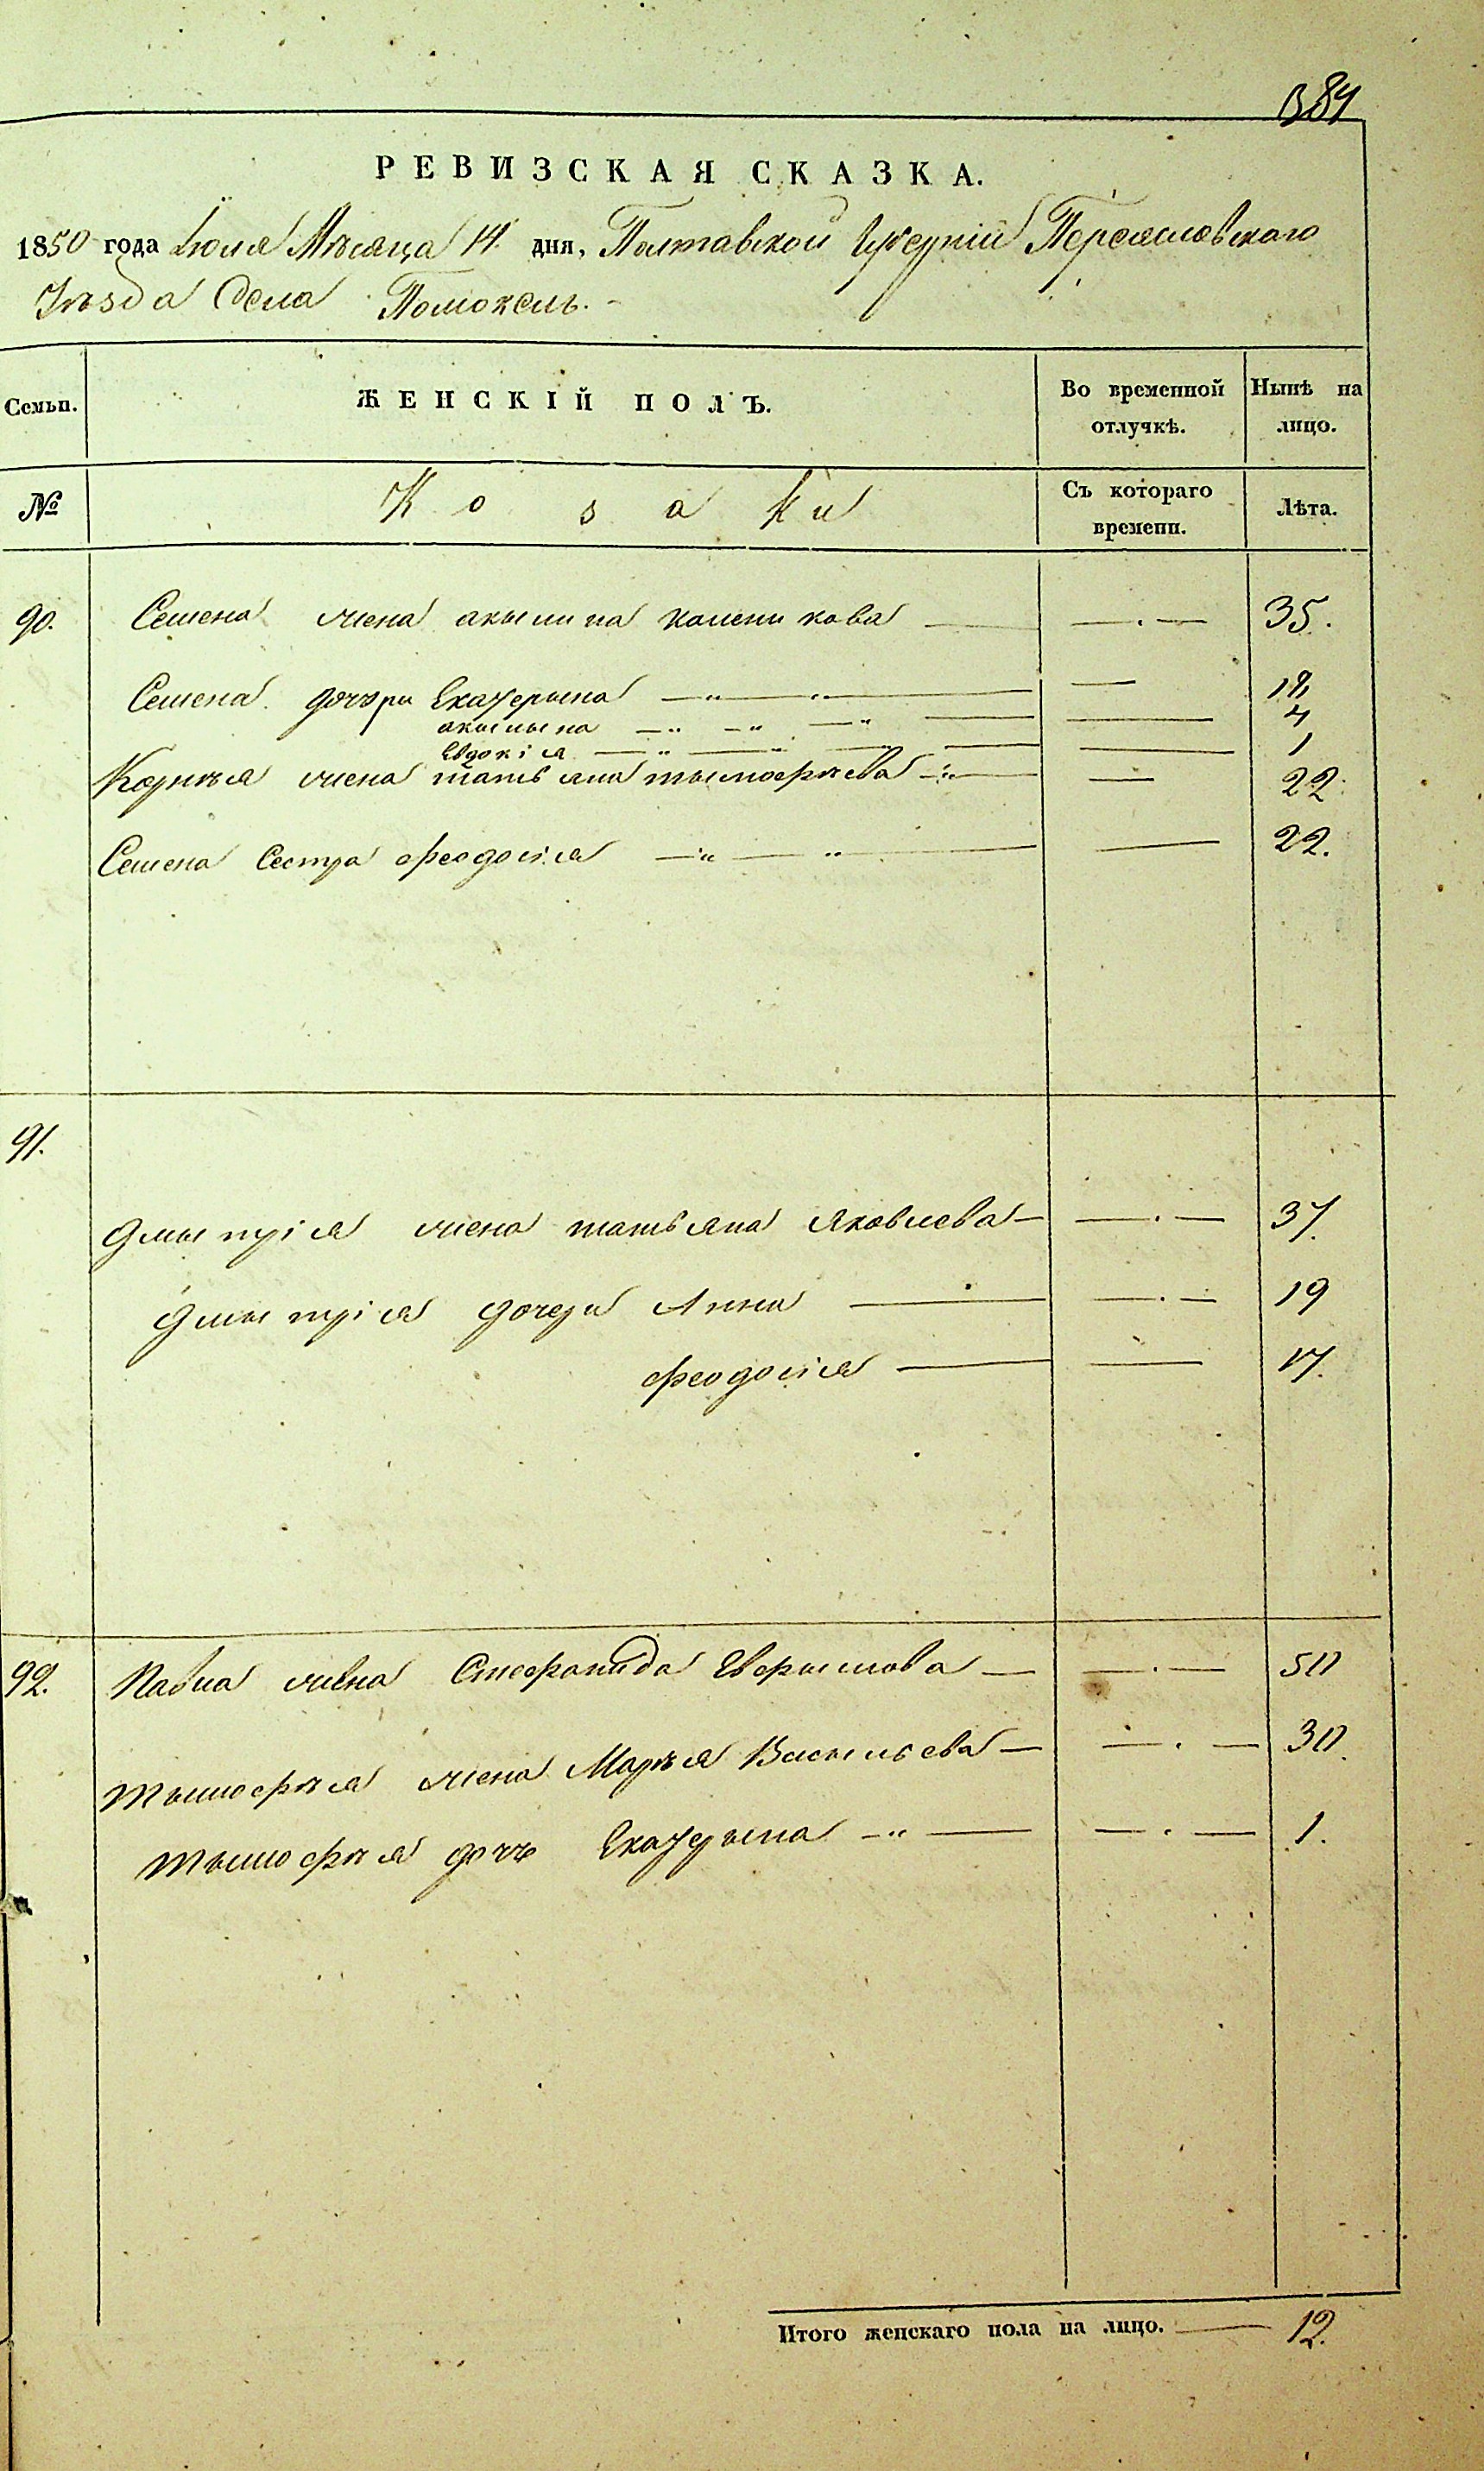 384
РЕВИЗСКАЯ СКАЗКА.
1850 года Іюля Мѣсяца 14. дня, Полтавской Губерніи Переясловского
Уѣзда Села Помоклъ.
Семьи. ЖЕНСКІЙ ПОЛЪ. Во временной отлучкѣ. Нынѣ на лицо.
№ Козаки Съ котораго времени. Лѣта.
90. Семена жена акылина каленикова — 35.
Семена дочѣри Екатерына —
акылына — 4
Евдокія — 1
Корнѣя жена татьяна тымофѣева — 22.
Семена Сестра феодосія — 22.
91.
Дмытрія жена татьяна Яковлева — 37.
Дмытрія дочери Анна — 19
феодосія — 17.
92. Павла жена Стефанида Евфымова — 50
тымофѣя жена Марѣя Васыльева — 30.
тымофѣя дочъ Екатерына — 1.
Итого женскаго пола на лицо. — 12.